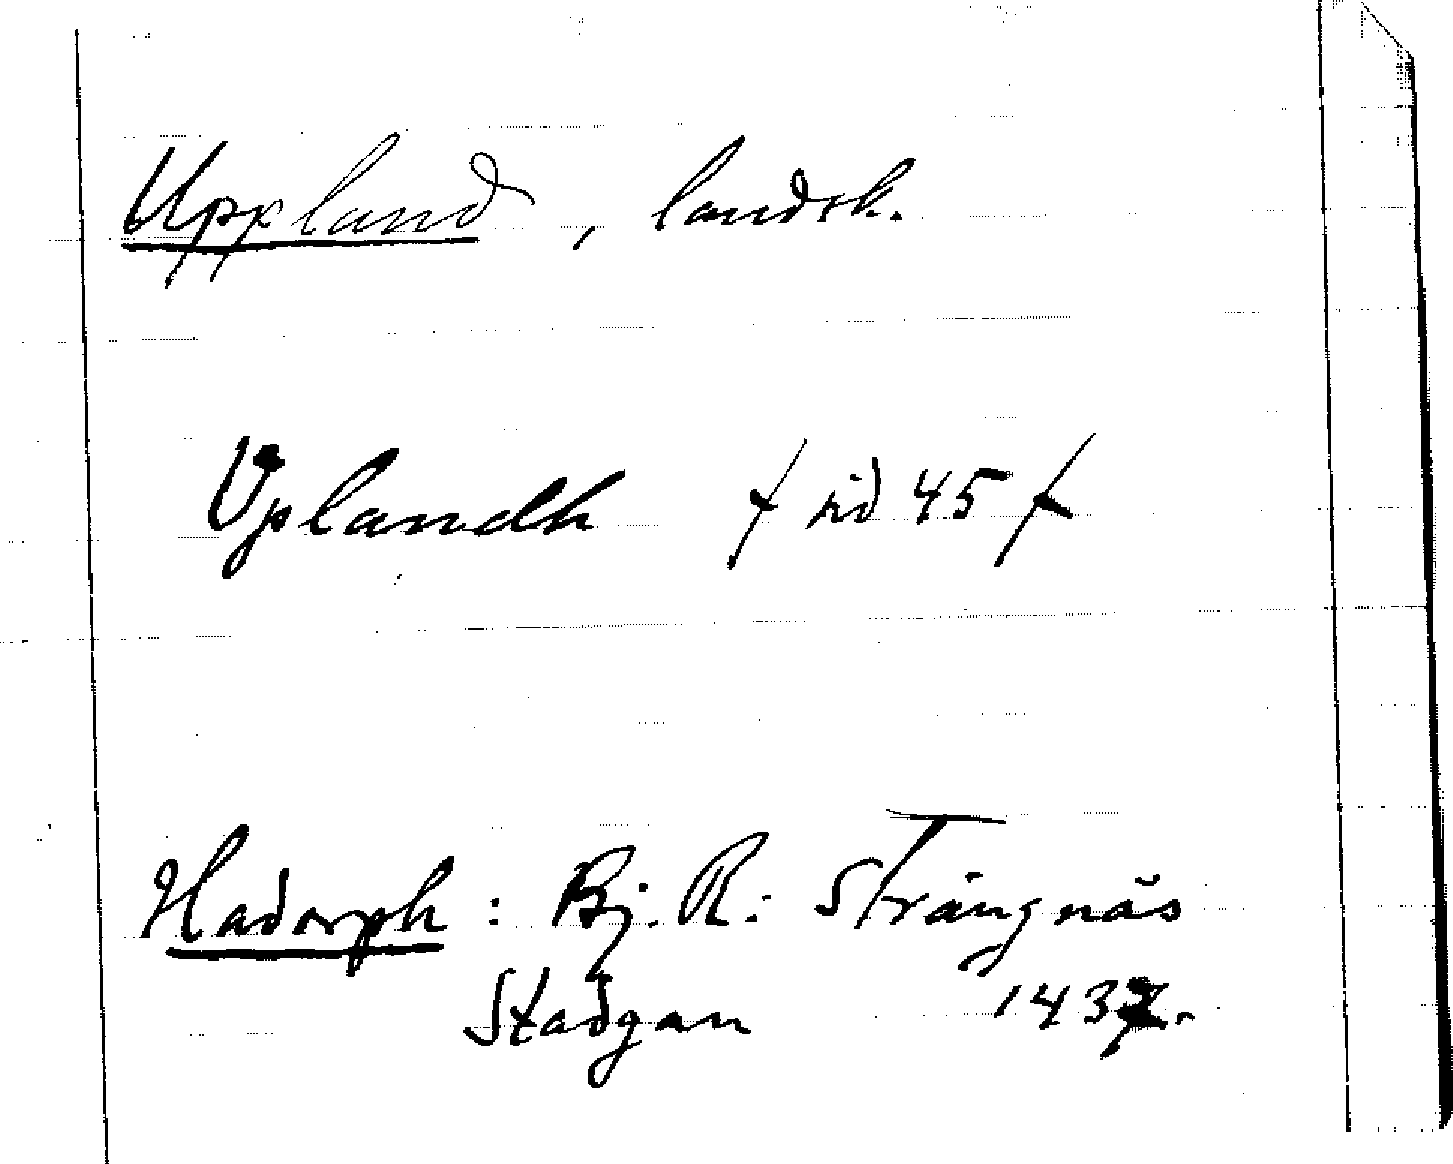 Uppland, landsk.
Uplandh / sid 45 /
Hadorph: Bj. R: Strängnäs
Stadgan 1437.